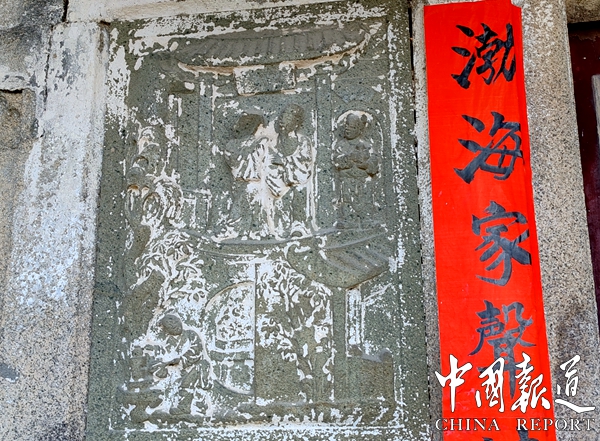 渤海家聲
中国报道
CHINA REPORT